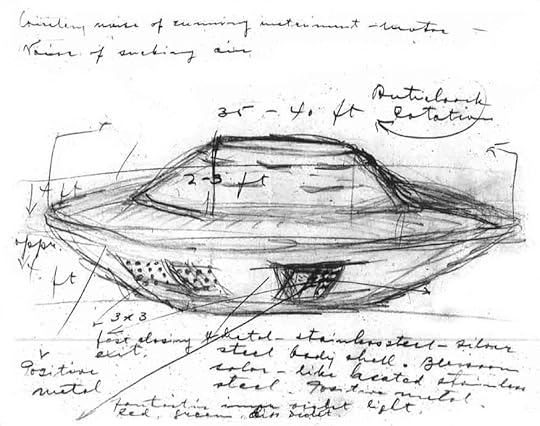 noise of running instrument - motor -
Noise of sucking air
35 - 40 ft
Anticlock
rotation
4 ft
2-3 ft
appr.
4 ft
3x3
fast closing
exit.
metal - stainless steel - silver
steel body shell.
color - like heated stainless
steel. Positive metal.
Positive
metal
inner light.
red, green,